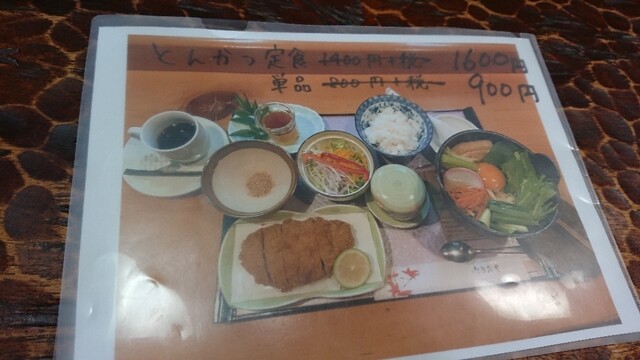 とんかつ定食 1400円+税 1600円
単品 800円+税 900円